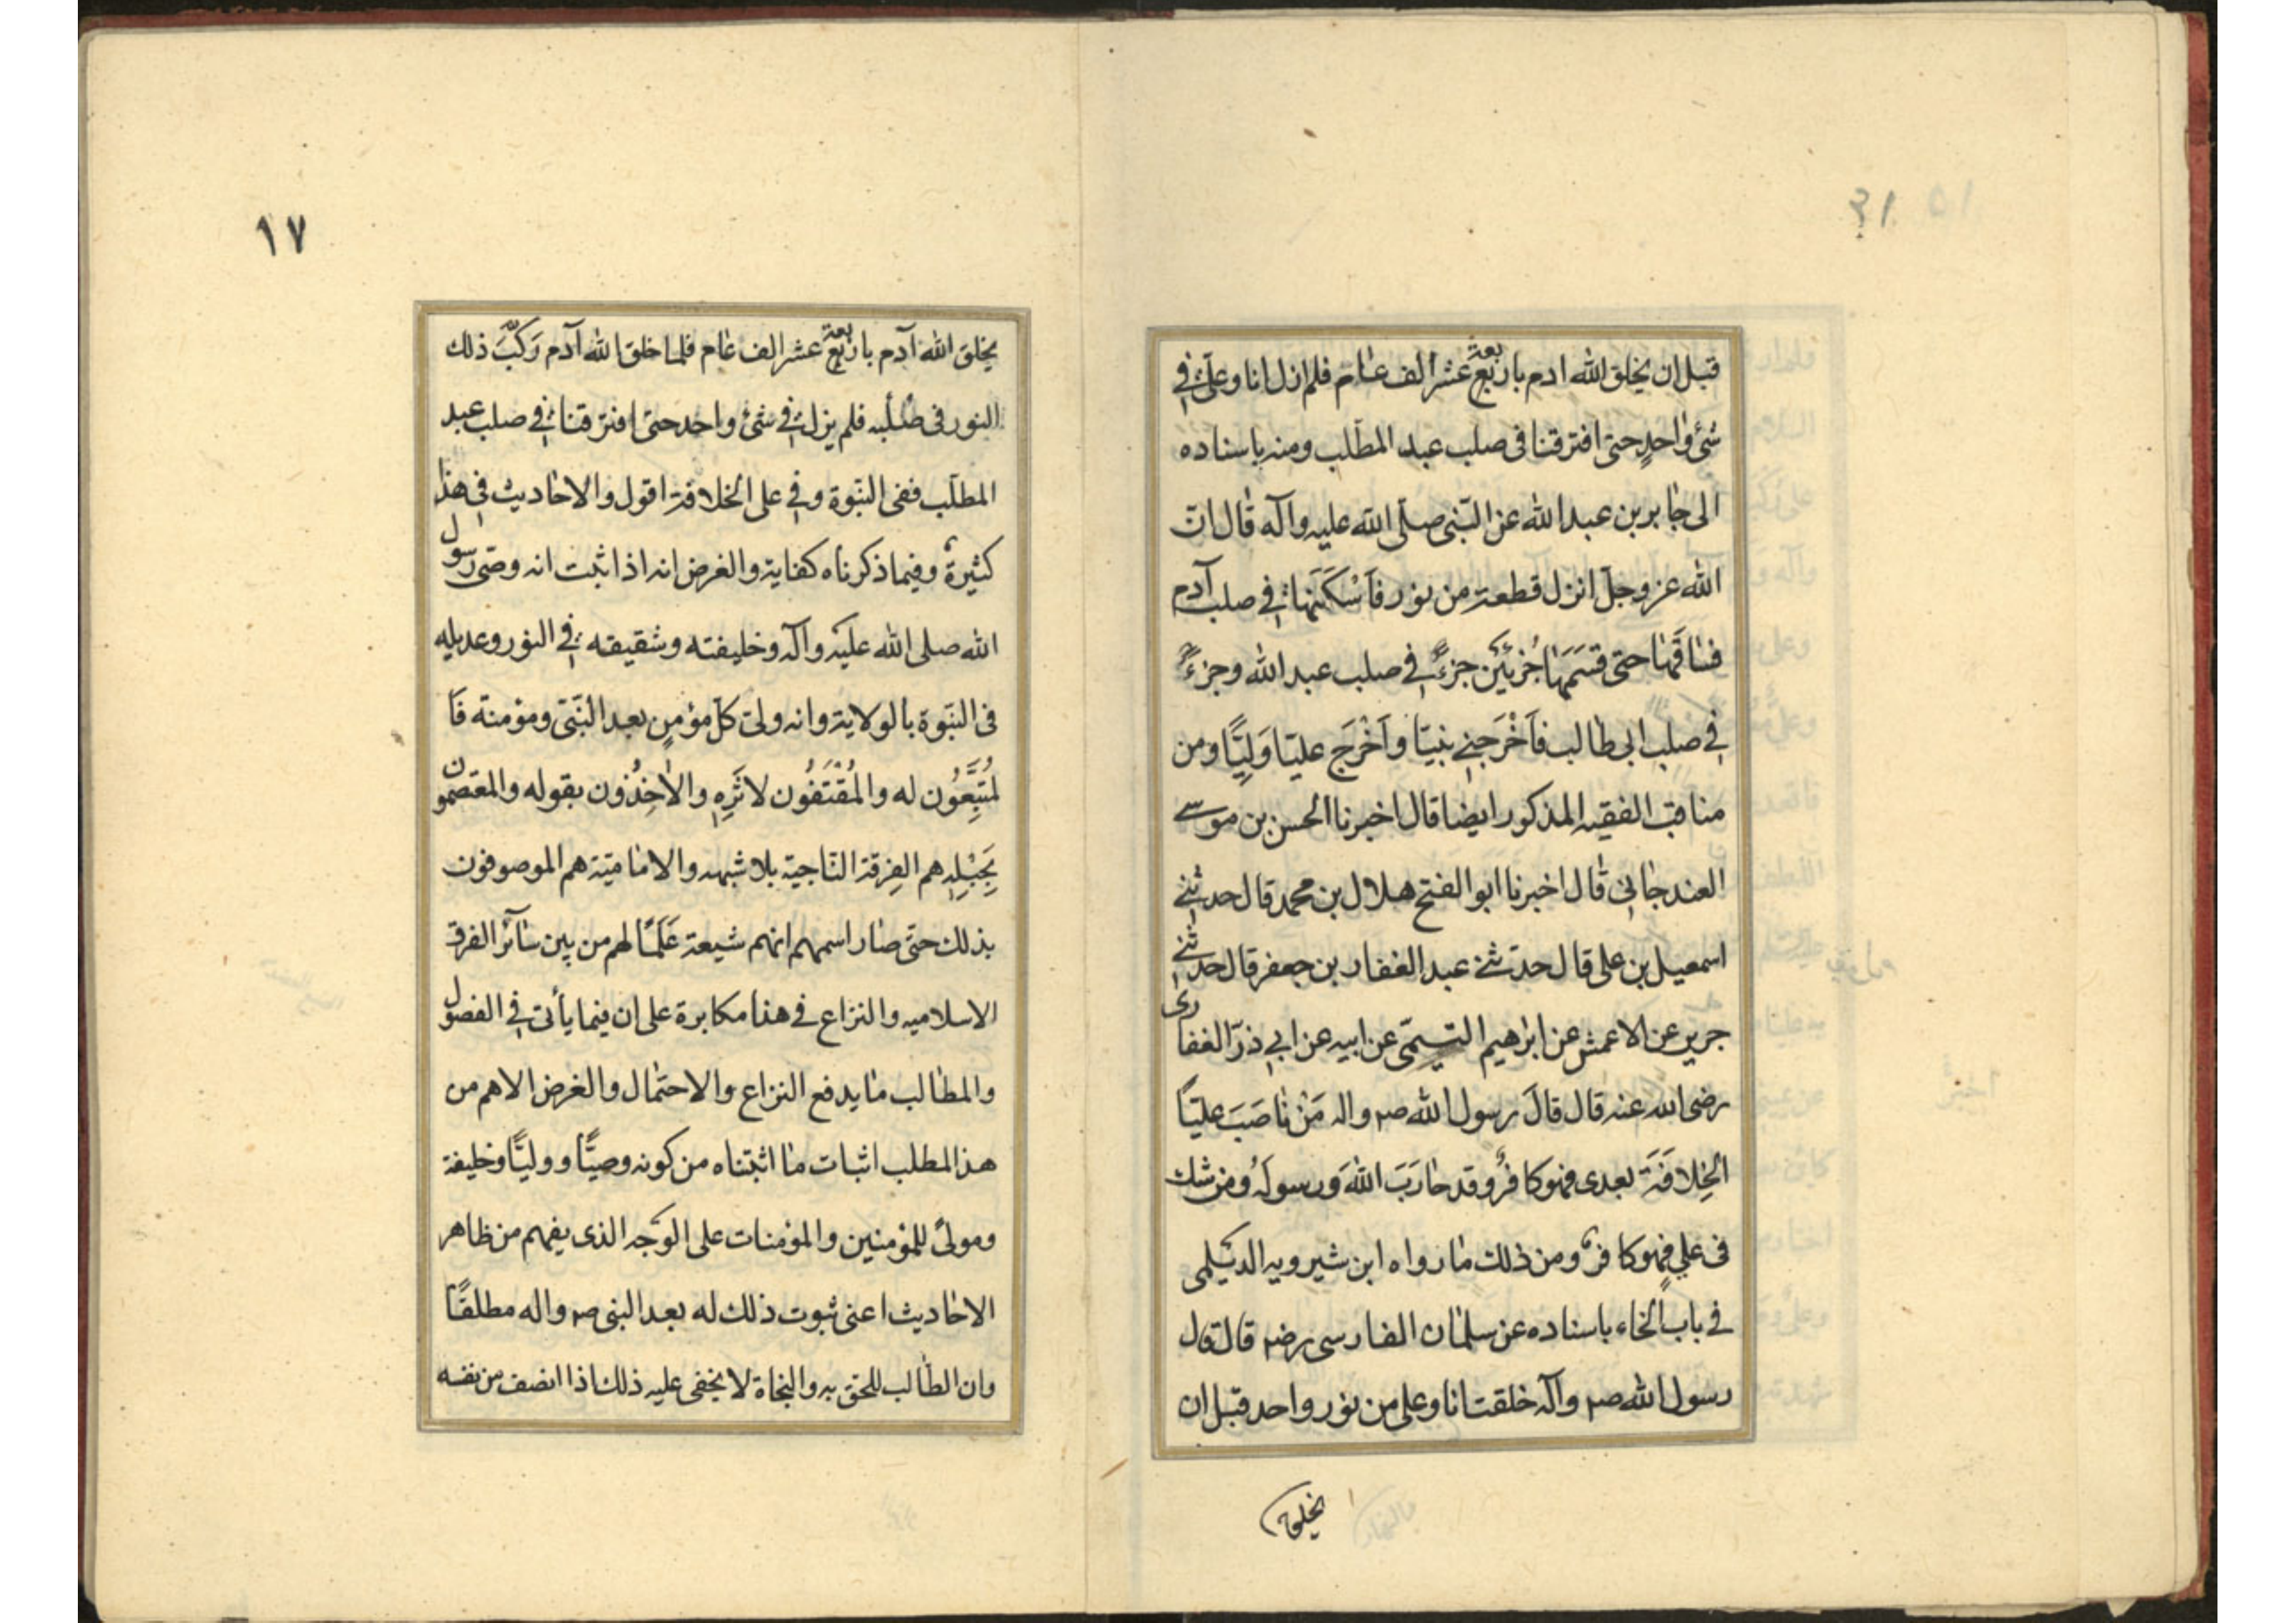 ١٦
قبل ان يخلق الله ادم باربعة عشر الف عام فلم ازل انا وعلىّ فى
شئ واحدٍ حتى افترقنا فى صلب عبد المطّلب ومنه باسناده
الى جابر بن عبد الله عن النّبى صلّى الله عليه وآله قال انّ
الله عز وجلّ انزل قطعة من نور فاَسْكَنَها فى صلب آدم
فساقَها حتى قسَمَها جُزئَيْن جزءً فى صلب عبد الله وجزءً
فى صلب ابى طالب فاَخْرَجنى نبيّا واَخْرَج عليّا وَليًّا ومن
مناقب الفقيه المذكور ايضا قال اخبرنا الحسن بن موسى
العندجانى قال اخبرنا ابو الفتح هلال بن محمد قال حدثنى
اسمعيل بن على قال حدثنى عبد الغفار بن جعفر قال حدثنى
جرير عن الاعمش عن ابرٰهيم التيمّى عن ابيه عن ابى ذرّ الغفارى
رضى الله عنه قال قالَ رسول الله صم واله مَنْ ناصَبَ عليّاً
الخِلافَةَ بعدى فهو كافرٌ وقد حارَبَ اللهَ وَرسولَهُ ومن شك
فى علىٍ فهو كافرٌ ومن ذلك ما رواه ابن شيرويه الديْلمى
فى باب الخاء باسناده عن سلمان الفارسى رضه قال قال
رسول الله صم وآله خلقت انا وعلى من نور واحد قبل ان
يخلق
١٧
يخلق الله آدم باربعة عشر الف عام فلما خلق الله آدم رَكّبَ ذلك
النور فى صُلبه فلم يزل فى شئ واحد حتى افترقنا فى صلب عبد
المطلّب ففى النبّوة وفى على الخلافة اقول والاحاديث فى هذا
كثيرةٌ وفيما ذكرناه كفاية والغرض انه اذا ثبت انه وصىّ رسول
الله صلى الله عليْه وآله وخليفته وشقيقه فى النور وعديله
فى النبّوة بالولاية وانه ولىّ كلّ مؤمنٍ بعد النّبىّ ومؤمنة فَا
لمُتّبِعُون له والمُقْتَفُون لاثَرِهِ والاٰخِذُون بقوله والمعتصمون
بِحَبْلِهِ هم الفِرقة النّاجية بلا شبهه والاماميّة هم الموصوفون
بذلك حتى صار اسمهم انهم شيعة عَلَمًا لهم من بين سآئر الفرق
الاسلاميه والنزاع فى هذا مكابرة على ان فيما يأتى فى الفصول
والمطالب ما يدفع النزاع والاحتمال والغرض الاهم من
هذا المطلب اثبات ما اثبتناه من كونه وصيًّا ووليًّا وخليفة
ومولىً للمؤمنين والمؤمنات على الوَجه الذى يفهم من ظاهر
الاحاديث اعنى ثبوت ذلك له بعد النبى صم واله مطلقًا
وان الطالب للحق به والنجاة لا يخفى عليه ذلك اذا انصف من نفسه